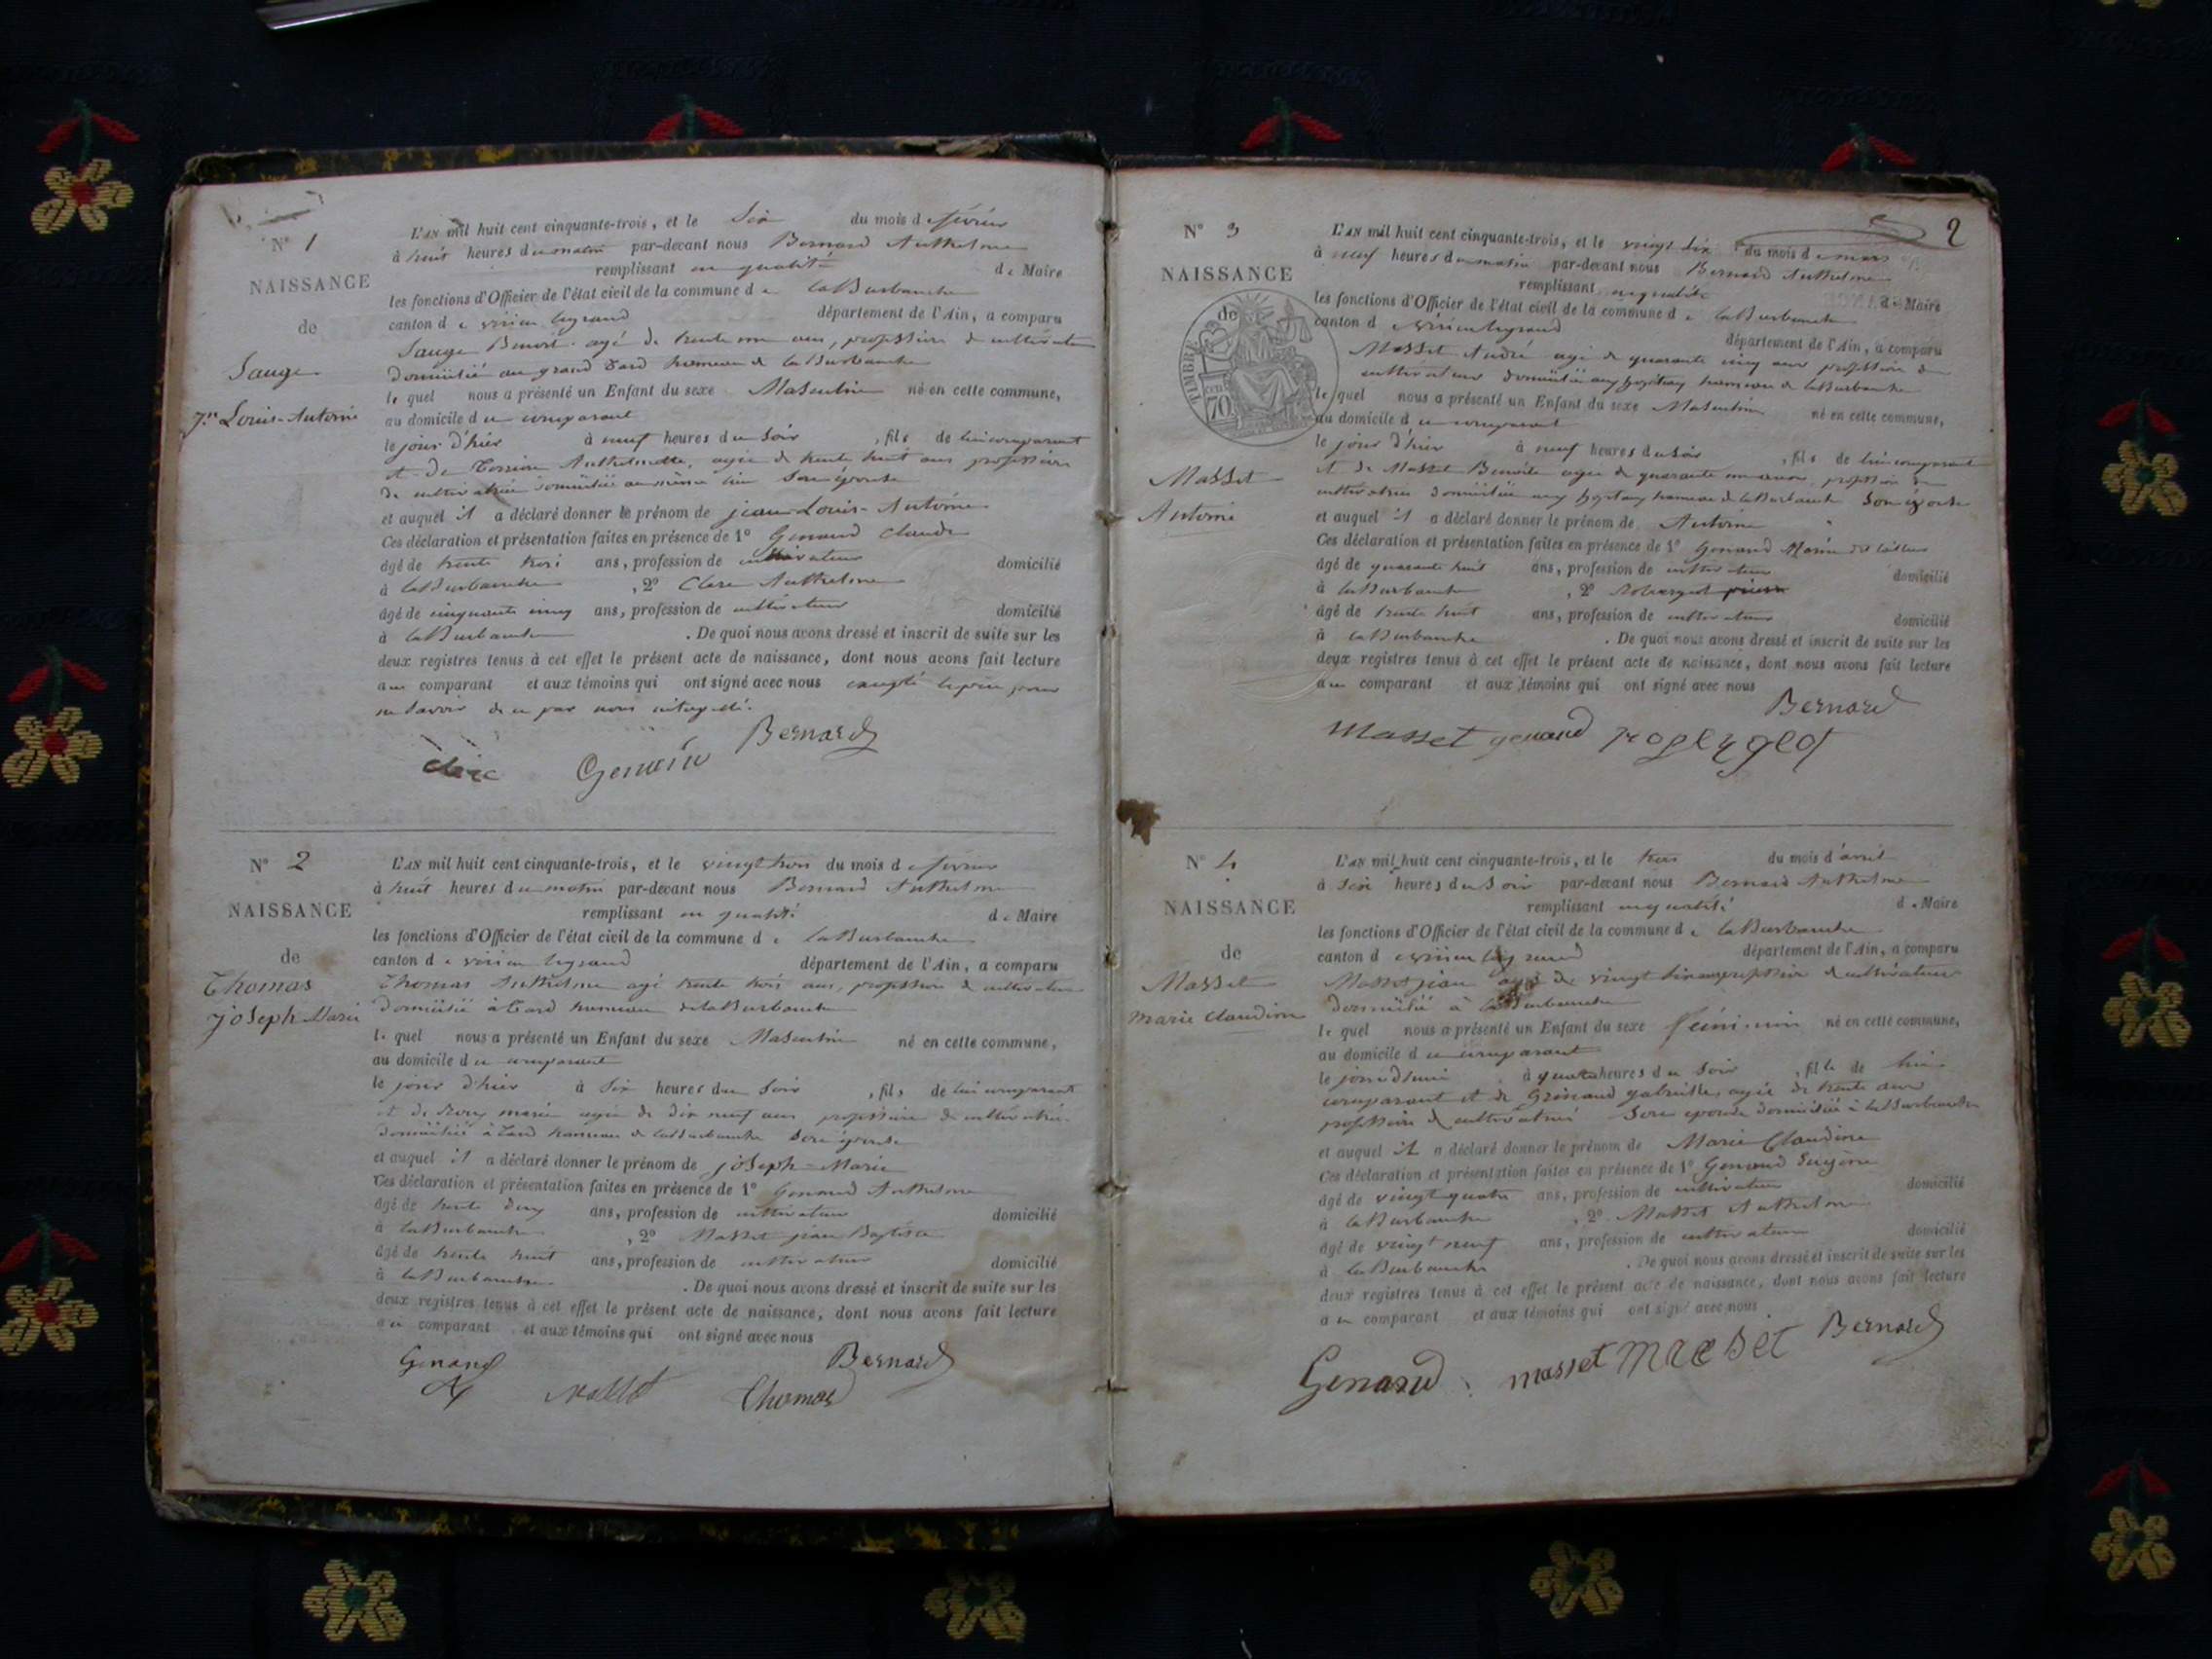 N° 1
NAISSANCE
de
Sauge
Jn Louis-Antoine
L'AN mil huit cent cinquante-trois, et le Six du mois de février
à huit heures du matin par-devant nous Bernard Anthelme
remplissant en qualité de Maire
les fonctions d'Officier de l'état civil de la commune de laBurbanche
canton de virieu legrand département de l'Ain, a comparu
Sauge Benoit agé de trente un ans, profession de cultivateur
domicilié au grand Tard hameau de la Burbanche
le quel nous a présenté un Enfant du sexe Masculin né en cette commune,
au domicile du comparant
le jour d'hier à neuf heures du Soir, fils de lui comparant
et de Anthelmette, agée de trente huit ans profession
de cultivatrice domiciliée au même lieu Son épouse
et auquel il a déclaré donner le prénom de jean-Louis-Antoine
Ces déclaration et présentation faites en présence de 1° Genand Claude
âgé de trente trois ans, profession de cultivateur domicilié
à laBurbanche, 2° Clerc Anthelme
âgé de cinquante cinq ans, profession de cultivateur domicilié
à laBurbanche. De quoi nous avons dressé et inscrit de suite sur les
deux registres tenus à cet effet le présent acte de naissance, dont nous avons fait lecture
au comparant et aux témoins qui ont signé avec nous excepté le père pour
ne Savoir de ce par nous interpellé.
clerc Bernard
N° 2
NAISSANCE
de
Thomas
joSeph Marie
L'AN mil huit cent cinquante-trois, et le vingt trois du mois de février
à huit heures du matin par-devant nous Bernard Anthelme
remplissant en qualité de Maire
les fonctions d'Officier de l'état civil de la commune de laBurbanche
canton de virieu legrand département de l'Ain, a comparu
Thomas Anthelme agé trente trois ans, profession de cultivateur
domicilié à Tard hameau de laBurbanche
le quel nous a présenté un Enfant du sexe Masculin né en cette commune,
au domicile du comparant
le jour d'hier à Six heures du Soir, fils de lui comparant
et de marie agée de dix neuf ans profession de cultivatrice
domiciliée à Tard hameau de laBurbanche Son épouse
et auquel il a déclaré donner le prénom de joSeph-Marie
Ces déclaration et présentation faites en présence de 1° Genand Anthelme
âgé de trente deux ans, profession de cultivateur domicilié
à laBurbanche, 2° Masset jean Baptiste
âgé de trente huit ans, profession de cultivateur domicilié
à laBurbanche. De quoi nous avons dressé et inscrit de suite sur les
deux registres tenus à cet effet le présent acte de naissance, dont nous avons fait lecture
au comparant et aux témoins qui ont signé avec nous
Genand Masset Thomas Bernard
2
N° 3
NAISSANCE
de
TIMBRE
70
Masset
Antoine
L'AN mil huit cent cinquante-trois, et le vingt dix du mois de mars
à neuf heures du matin par-devant nous Bernard Anthelme
remplissant en qualité de Maire
les fonctions d'Officier de l'état civil de la commune de laBurbanche
canton de virieu legrand département de l'Ain, a comparu
Masset André agé de quarante cinq ans profession de
cultivateur domicilié hameau de laBurbanche
le quel nous a présenté un Enfant du sexe Masculin né en cette commune,
au domicile du comparant
le jour d'hier à neuf heures du Soir, fils de lui comparant
et de Masset Benoite agée de quarante un ans, profession de
cultivatrice domiciliée hameau de laBurbanche Son épouse
et auquel il a déclaré donner le prénom de Antoine
Ces déclaration et présentation faites en présence de 1° Genand
âgé de quarante huit ans, profession de cultivateur domicilié
à laBurbanche, 2°
âgé de trente huit ans, profession de cultivateur domicilié
à laBurbanche. De quoi nous avons dressé et inscrit de suite sur les
deux registres tenus à cet effet le présent acte de naissance, dont nous avons fait lecture
au comparant et aux témoins qui ont signé avec nous
Bernard
Masset genand
N° 4
NAISSANCE
de
Masset
Marie Claudine
L'AN mil huit cent cinquante-trois, et le trois du mois d'avril
à Six heures du Soir par-devant nous Bernard Anthelme
remplissant en qualité de Maire
les fonctions d'Officier de l'état civil de la commune de laBurbanche
canton de virieu legrand département de l'Ain, a comparu
Masset jean agé de vingt profession de cultivateur
domicilié à laBurbanche
le quel nous a présenté un Enfant du sexe féminin né en cette commune,
au domicile du comparant
le à quatre heures du Soir, fille de lui
comparant et de gabrielle, agée de trente deux
profession de cultivatrice Son épouse domiciliée à laBurbanche
et auquel il a déclaré donner le prénom de Marie Claudine
Ces déclaration et présentation faites en présence de 1° Genand Eugène
âgé de vingt quatre ans, profession de cultivateur domicilié
à laBurbanche, 2° Masset Anthelme
âgé de vingt neuf ans, profession de cultivateur domicilié
à laBurbanche. De quoi nous avons dressé et inscrit de suite sur les
deux registres tenus à cet effet le présent acte de naissance, dont nous avons fait lecture
au comparant et aux témoins qui ont signé avec nous
Genand masset Bernard